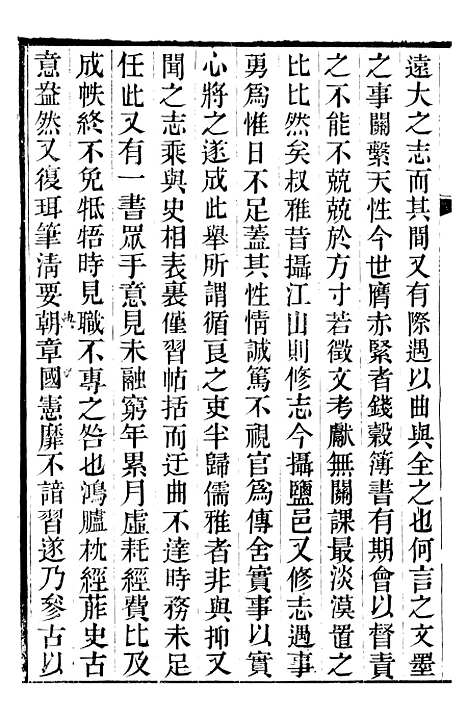 遠大之志而其間又有際遇以曲與全之也何言之文墨
之事關繫天性今世膺赤緊者錢穀簿書有期會以督責
之不能不兢兢於方寸若徵文考獻無關課最淡漠置之
比比然矣叔雅昔攝江山則修志今攝鹽邑又修志遇事
勇爲惟日不足蓋其性情誠篤不視官爲傳舍實事以實
心將之遂成此舉所謂循良之吏半歸儒雅者非與抑又
聞之志乘與史相表裏僅習帖括而迂曲不達時務未足
任此又有一書眾手意見未融窮年累月虛耗經費比及
成帙終不免牴牾時見職不專之咎也鴻臚枕經葄史古
意盎然又復珥筆清要朝章國憲靡不諳習遂乃參古以